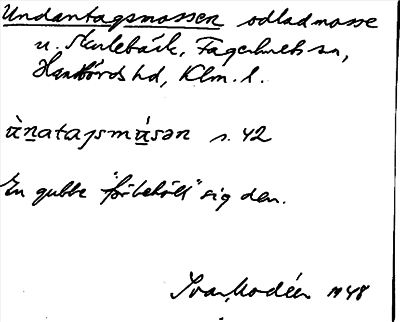 Undantagsmossen odladmosse
u. Skulebäck, Fagerhults sn,
Handbörds hd, Klm. l.
ùn̲atagsmå̲sən s. 42
En gubbe "förbehöll" sig den.
Ivar Modéer 1948